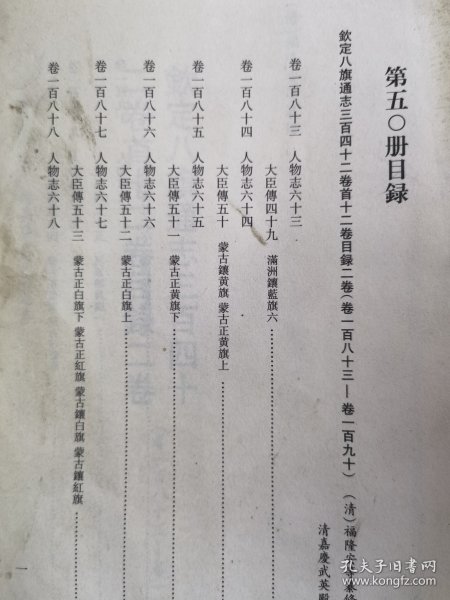 第五〇册目録
欽定八旗通志三百四十二卷首十二卷目録二卷(卷一百八十三—卷一百九十) (清)福隆安
清嘉慶武英殿
卷一百八十三 人物志六十三
大臣傳四十九 滿洲鑲藍旗六
卷一百八十四 人物志六十四
大臣傳五十 蒙古鑲黄旗 蒙古正黄旗上
卷一百八十五 人物志六十五
大臣傳五十一 蒙古正黄旗下
卷一百八十六 人物志六十六
大臣傳五十二 蒙古正白旗上
卷一百八十七 人物志六十七
大臣傳五十三 蒙古正白旗下 蒙古正紅旗 蒙古鑲白旗 蒙古鑲紅旗
卷一百八十八 人物志六十八
一
孔夫子旧书网